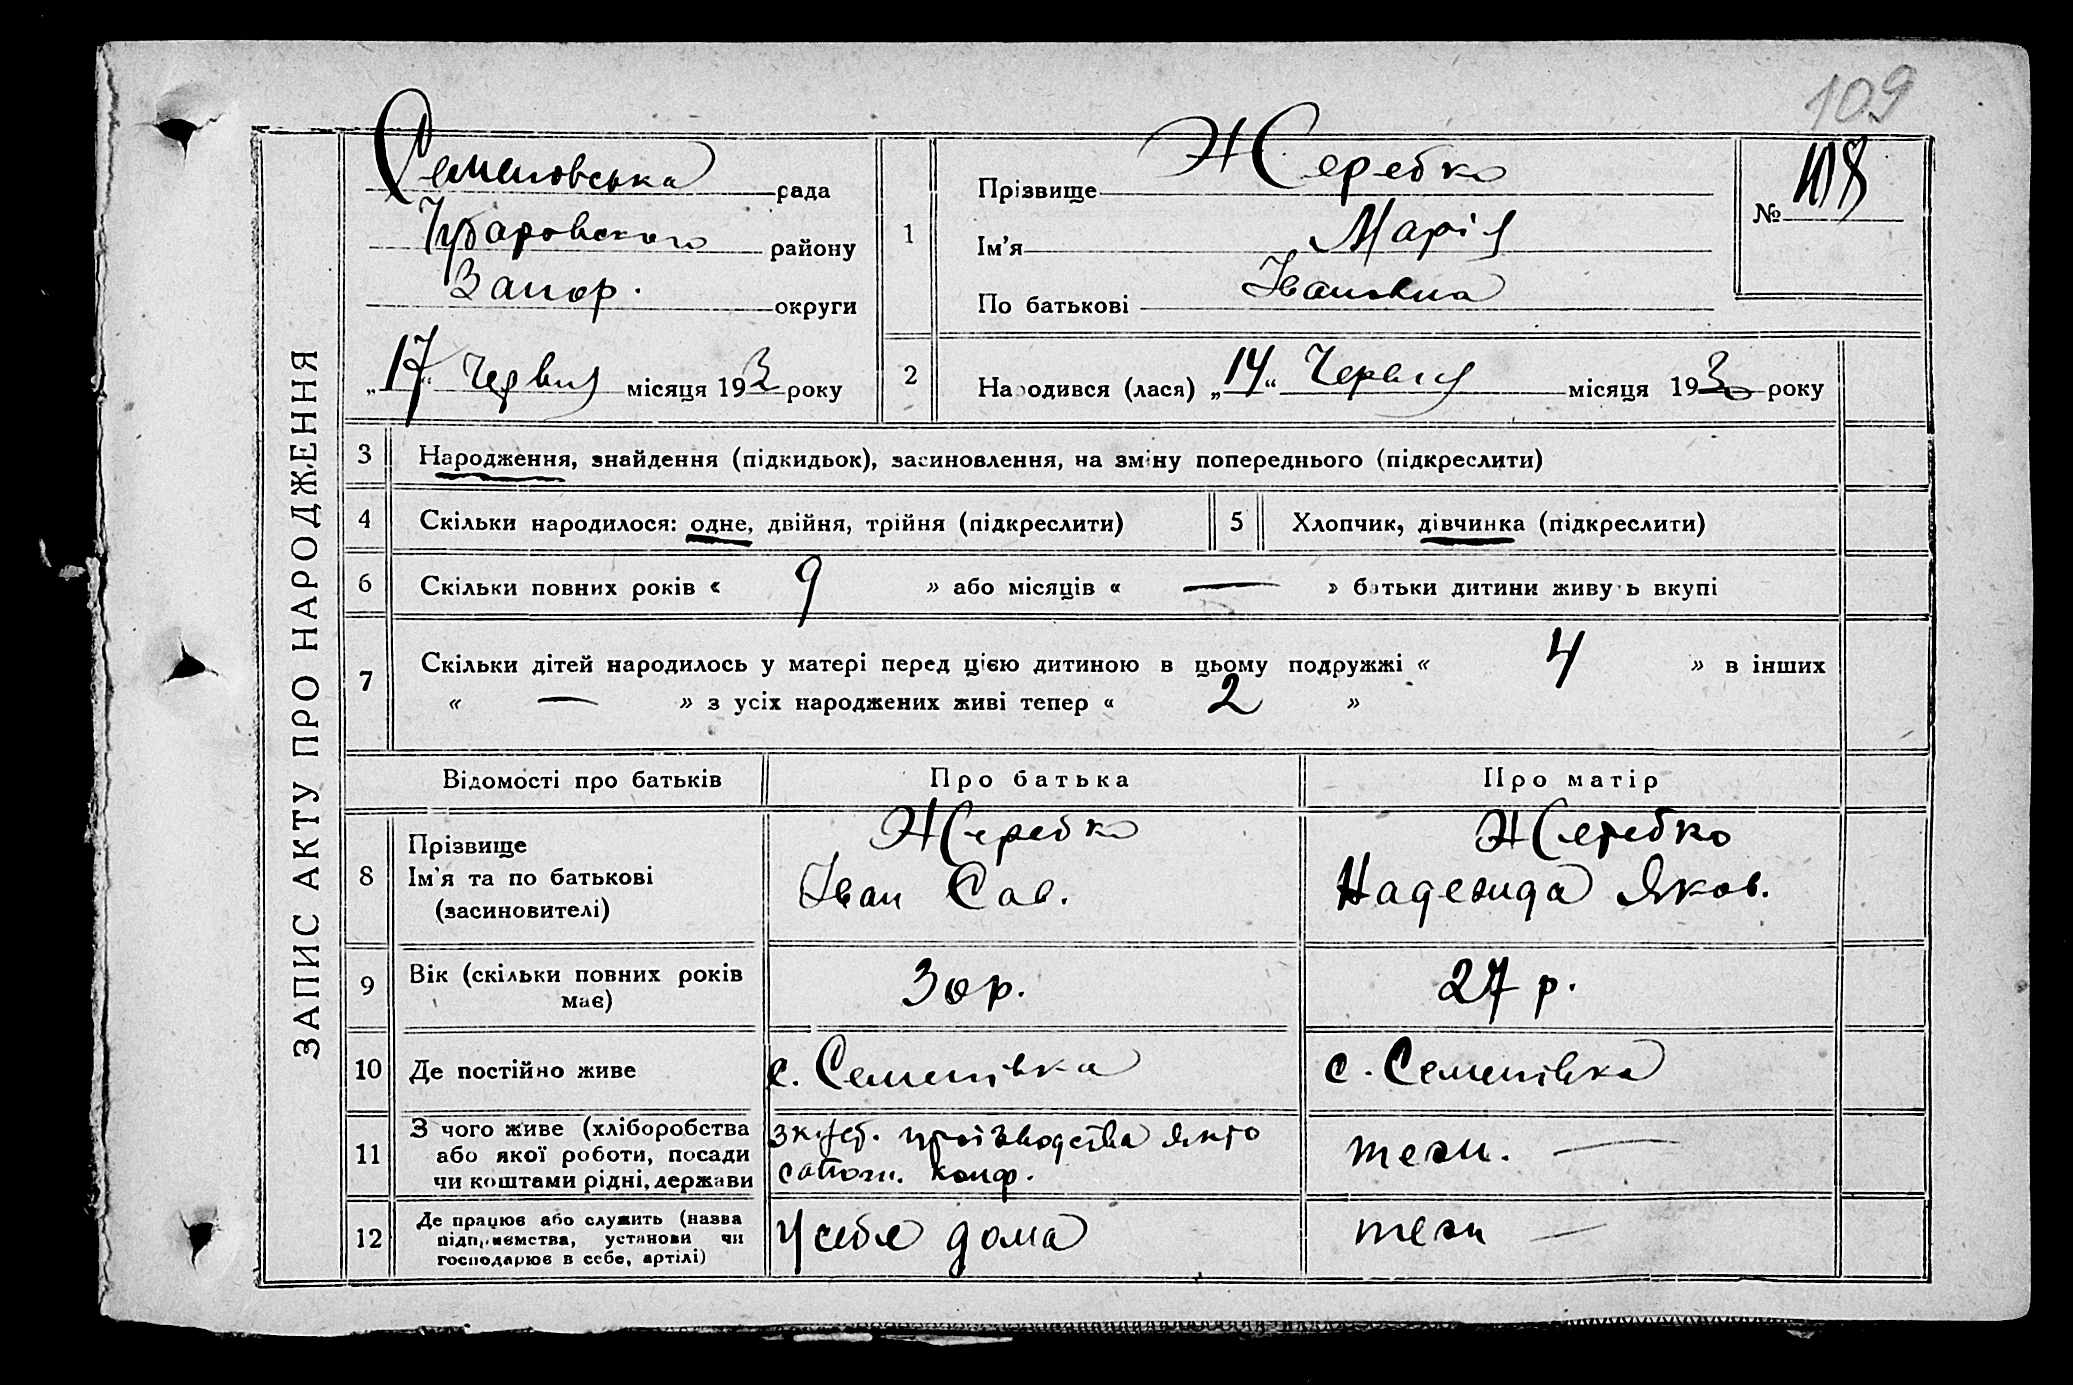 109
ЗАПИС АКТУ ПРО НАРОДЖЕННЯ
Семеновська рада
Чубаровского району
Запор. округи
„17“ Червня місяця 193 року
1
Прізвище Жеребко
Ім’я Марія
По батькові Івановна
№ 108
2
Народився (лася) „14“ Червня місяця 1930 року
3 Народження, знайдення (підкидьок), засиновлення, на зміну попереднього (підкреслити)
4 Скільки народилося: одне, двійня, трійня (підкреслити) 5 Хлопчик, дівчинка (підкреслити)
6 Скільки повних років « 9 » або місяців « — » батьки дитини живуть вкупі
7 Скільки дітей народилось у матері перед цією дитиною в цьому подружжі « 4 » в інших
« — » з усіх народжених живі тепер « 2 »
Відомості про батьків Про батька Про матір
8
Прізвище
Ім’я та по батькові
(засиновителі)
Жеребко
Іван Сав.
Жеребко
Надежда Яков.
9
Вік (скільки повних років
має)
30 р.
27 р.
10 Де постійно живе с. Семенівка с. Семенівка
11
З чого живе (хліборобства
або якої роботи, посади
чи коштами рідні, держави
производства
сапожн.
тежи. —
12
Де працює або служить (назва
підприємства, установи чи
господарює в себе, артілі)
У себе дома
тежи —